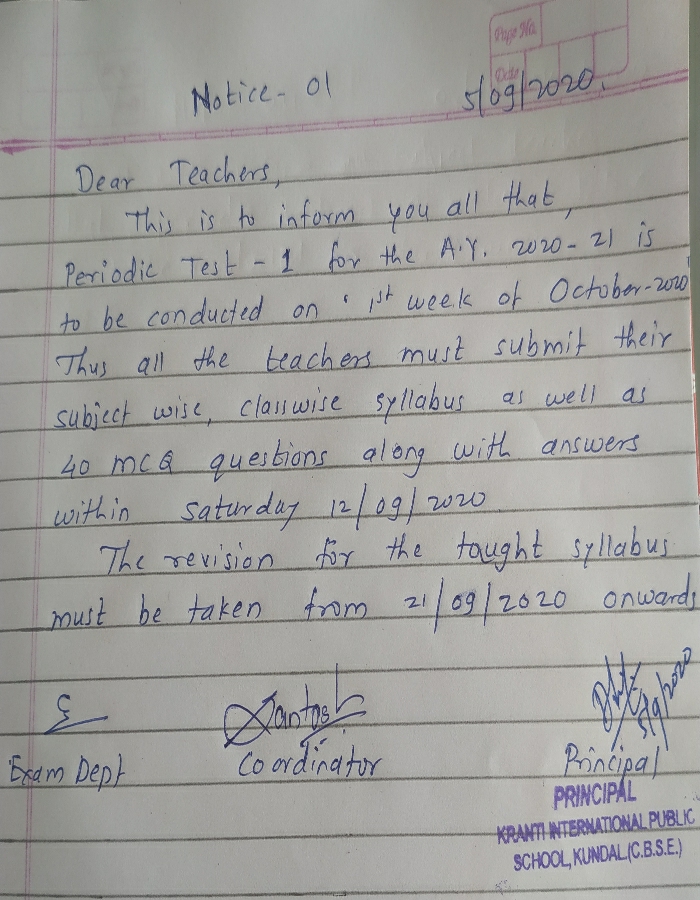 Page No.
Date
Notice- 01 5/09/2020.
Dear Teachers,
This is to inform you all that,
Periodic Test - 1 for the A.Y. 2020-21 is
to be conducted on 1st week of October-2020
Thus all the teachers must submit their
subject wise, classwise syllabus as well as
40 MCQ questions along with answers
within Saturday 12/09/2020
The revision for the taught syllabus
must be taken from 21/09/2020 onwards
Santosh 5/9/2020
Exam Dept Coordinator Principal
PRINCIPAL
KRANTI INTERNATIONAL PUBLIC
SCHOOL, KUNDAL.(C.B.S.E.)